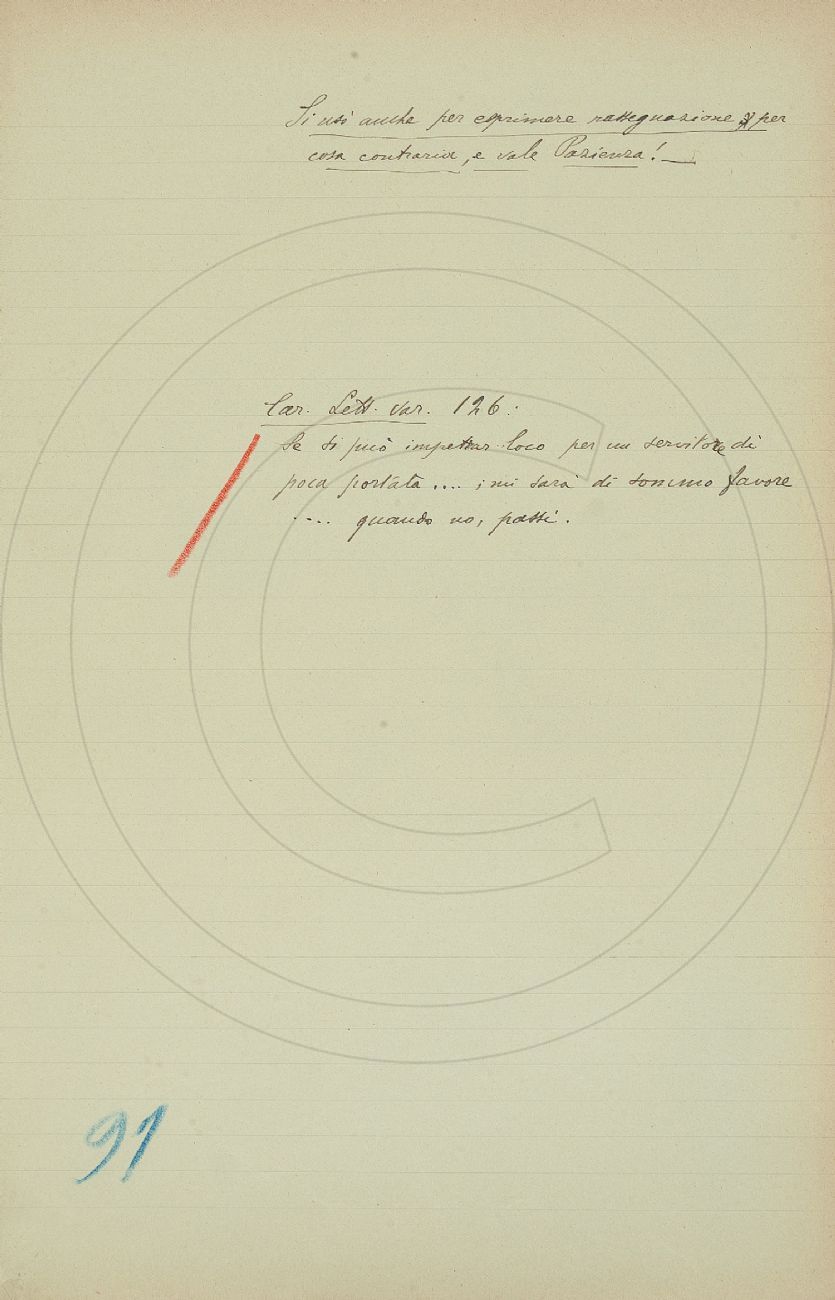 Si usi anche per esprimere rassegnazione per
cosa contraria, e vale Pazienza! _
Car. Lett. var. 126:
Se si può impetrar loco per un servitore di
poca portata .... ; mi sarà di sommo favore
.... quando no, passi.
91